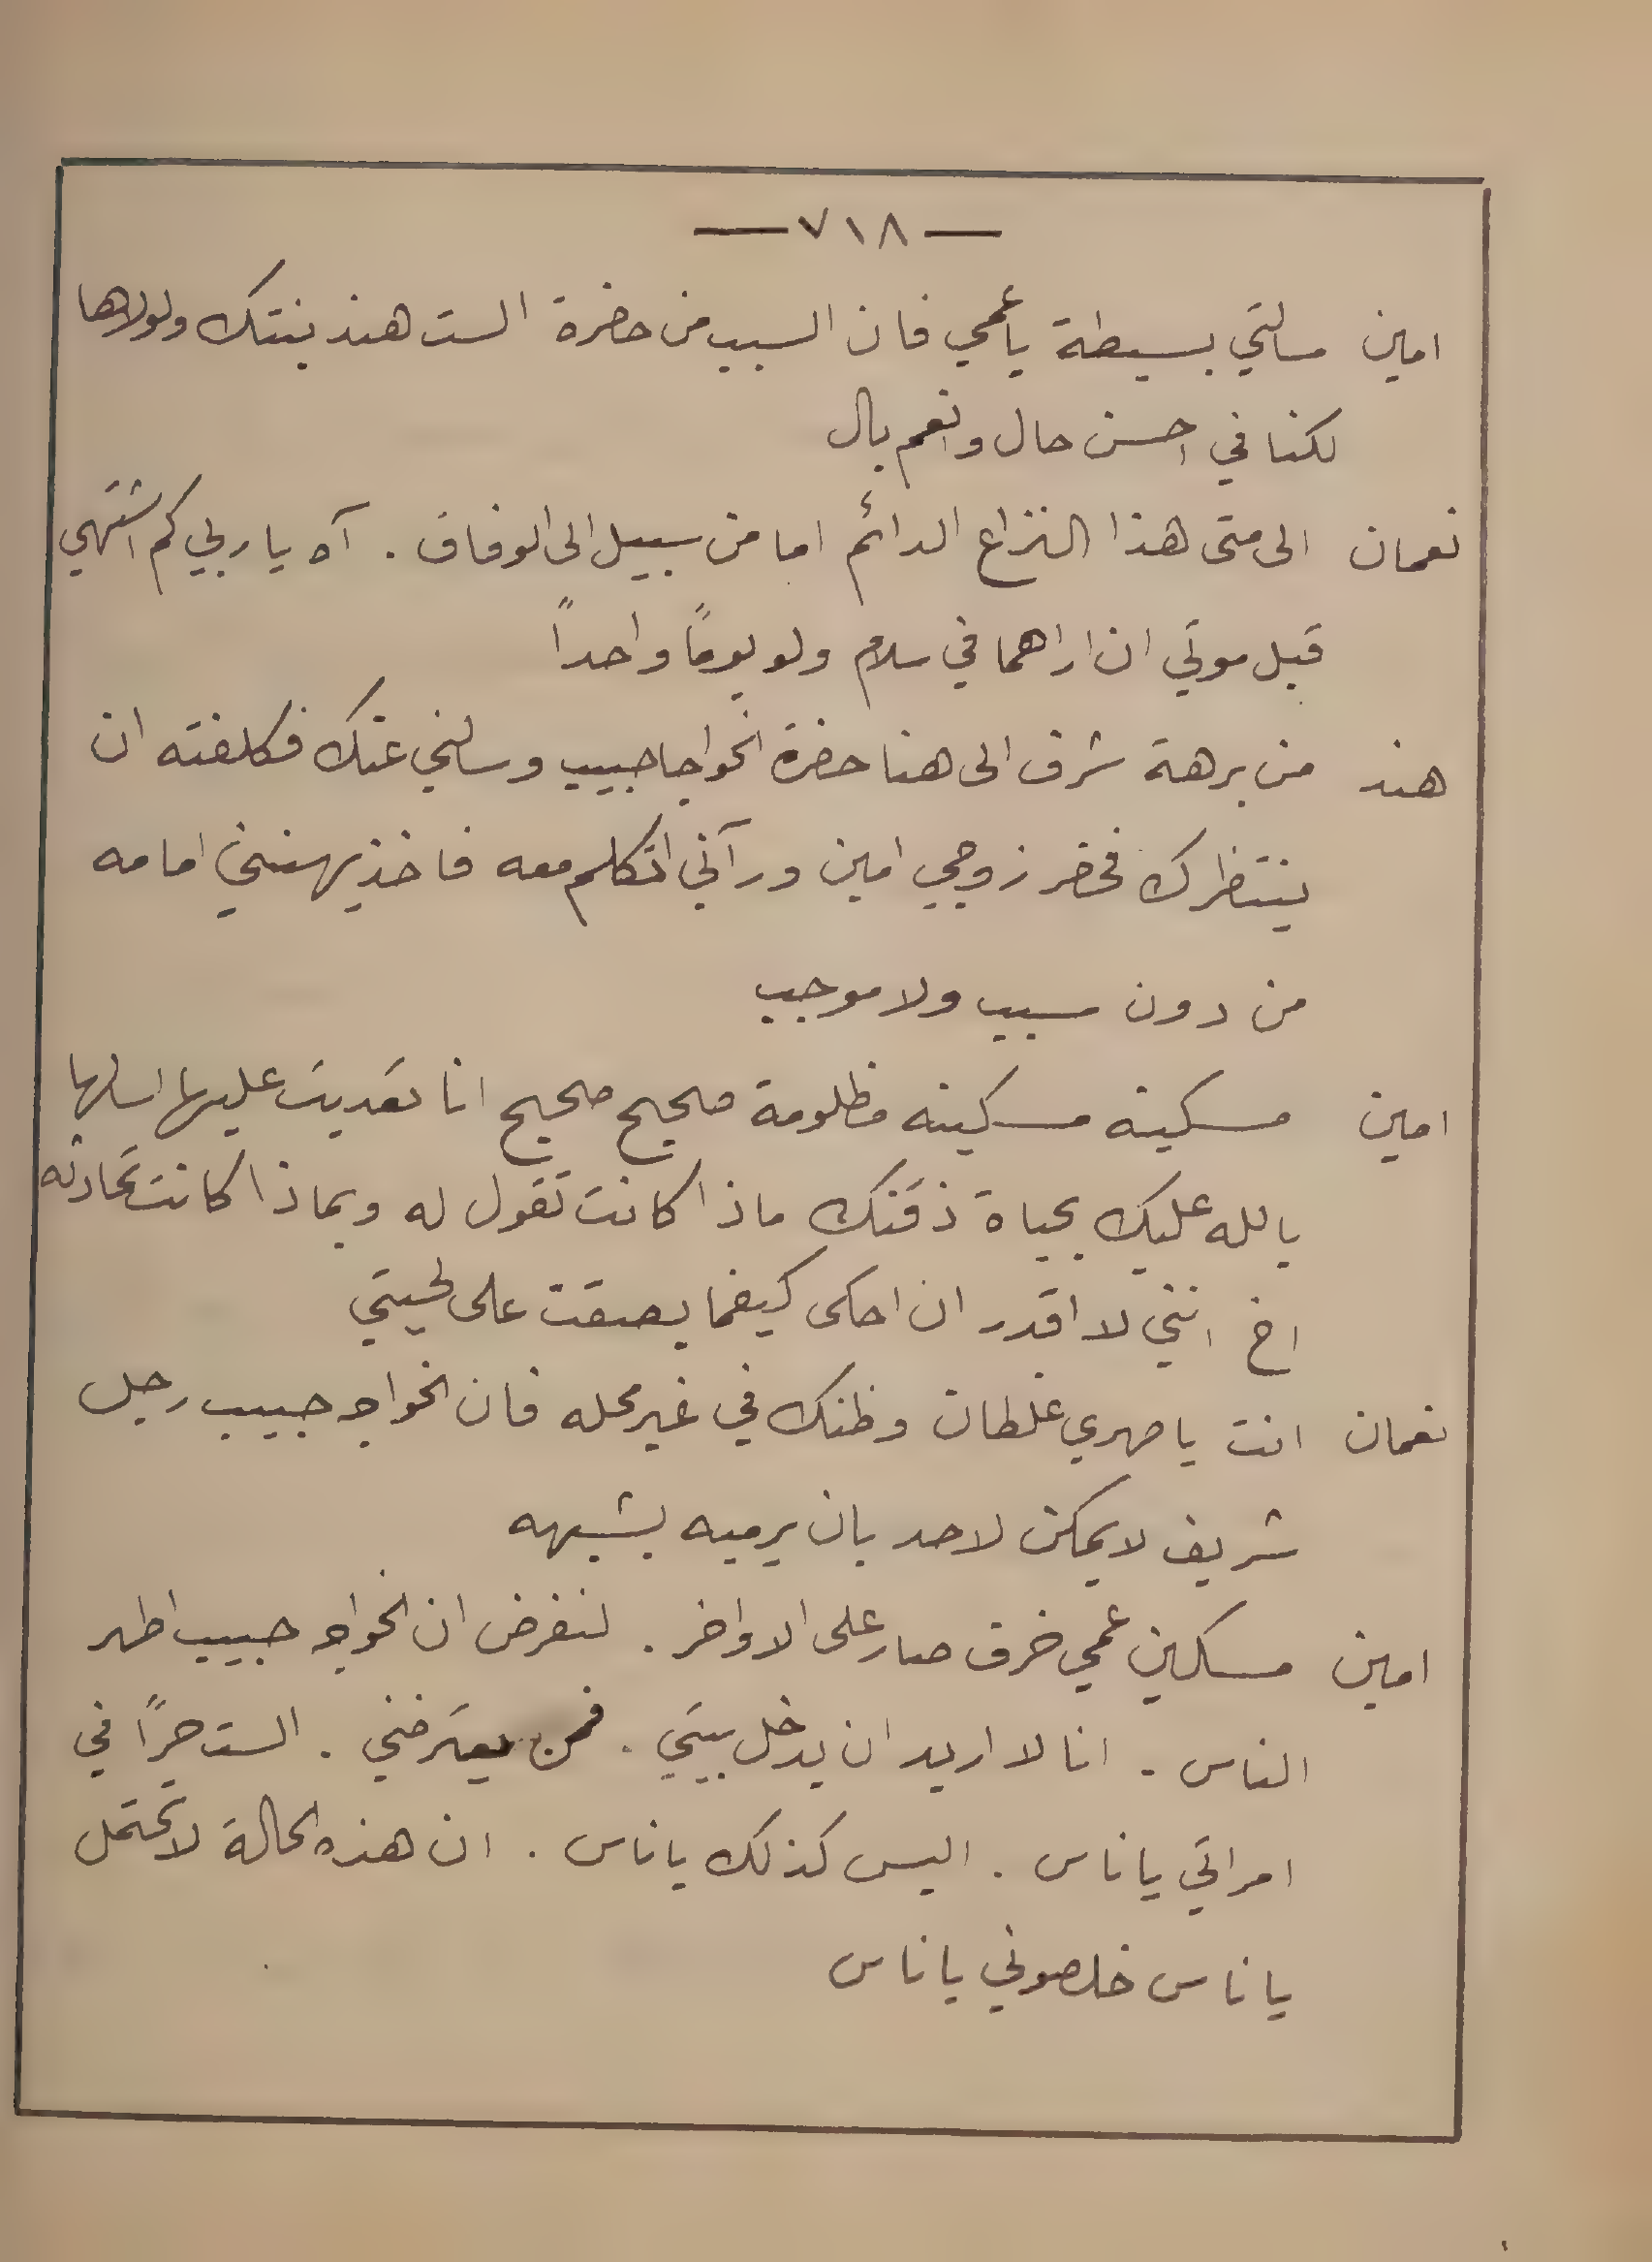 — ٧١٨ —
امين مسالتي بسيطة يا عمي فان السبب من حضرة الست هند بنتك ولولاها
لكنا في احسن حال وانعم بال
نعمان الى متى هذا النزاع الدائم اما من سبيل الى الوفاق . آه يا ربي كم اشتهي
قبل موتي ان اراهما في سلام ولو يومًا واحدًا
هند من برهة شرف الى هنا حضرة الخواجا حبيب وسالني عنك فكلفته ان
ينتظرك فحضر زوجي امين ورآني اتكلم معه فاخذ يهينني امامه
من دون سبب ولا موجب
امين مسكينة مسكينه مظلومة صحيح صحيح انا تعديت عليها اسالها
بالله عليك بحياة ذقنك ماذا كانت تقول له وبماذا كانت تحادثه
اخ انني لا اقدر ان احكى كيفما بصقت على لحيتي
نعمان انت يا صهري غلطان وظنك في غير محله فان الخواجه حبيب رجل
شريف لا يمكن لاحد بان يرميه بشبهه
امين مسكين عمي خرف صار على الاواخر . لنفرض ان الخواجه حبيب اطهر
الناس . انا لا اريد ان يدخل بيتي . فمن يعترضني . الست حرًا في
امراتي يا ناس . اليس كذلك يا ناس . ان هذه الحالة لا تحتمل
يا ناس خلصوني يا ناس